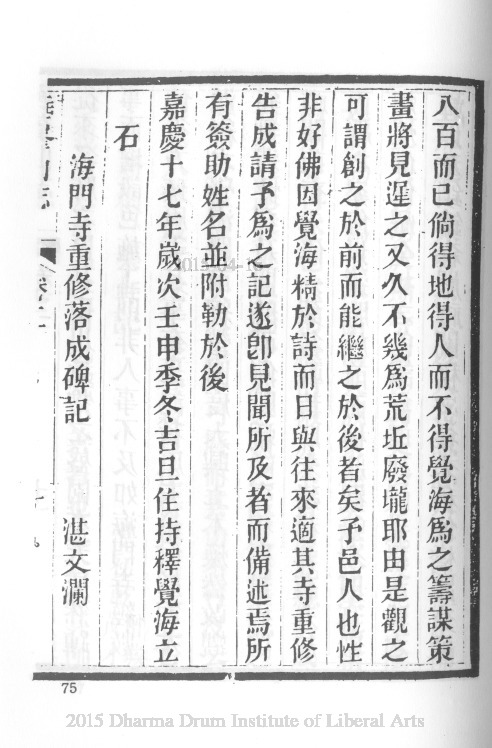 八百而已倘得地得人而不得覺海爲之籌謀策
畫將見遲之又久不幾爲荒坵廢壠耶由是觀之
可謂創之於前而能繼之於後者矣予邑人也性
非好佛因覺海精於詩而日與往來適其寺重修
告成請予爲之記遂卽見聞所及者而備述焉所
有簽助姓名並附勒於後
嘉慶十七年歲次壬申季冬吉旦住持釋覺海立
石
海門寺重修落成碑記 湛文瀾
卷十二
75
2015 Dharma Drum Institute of Liberal Arts